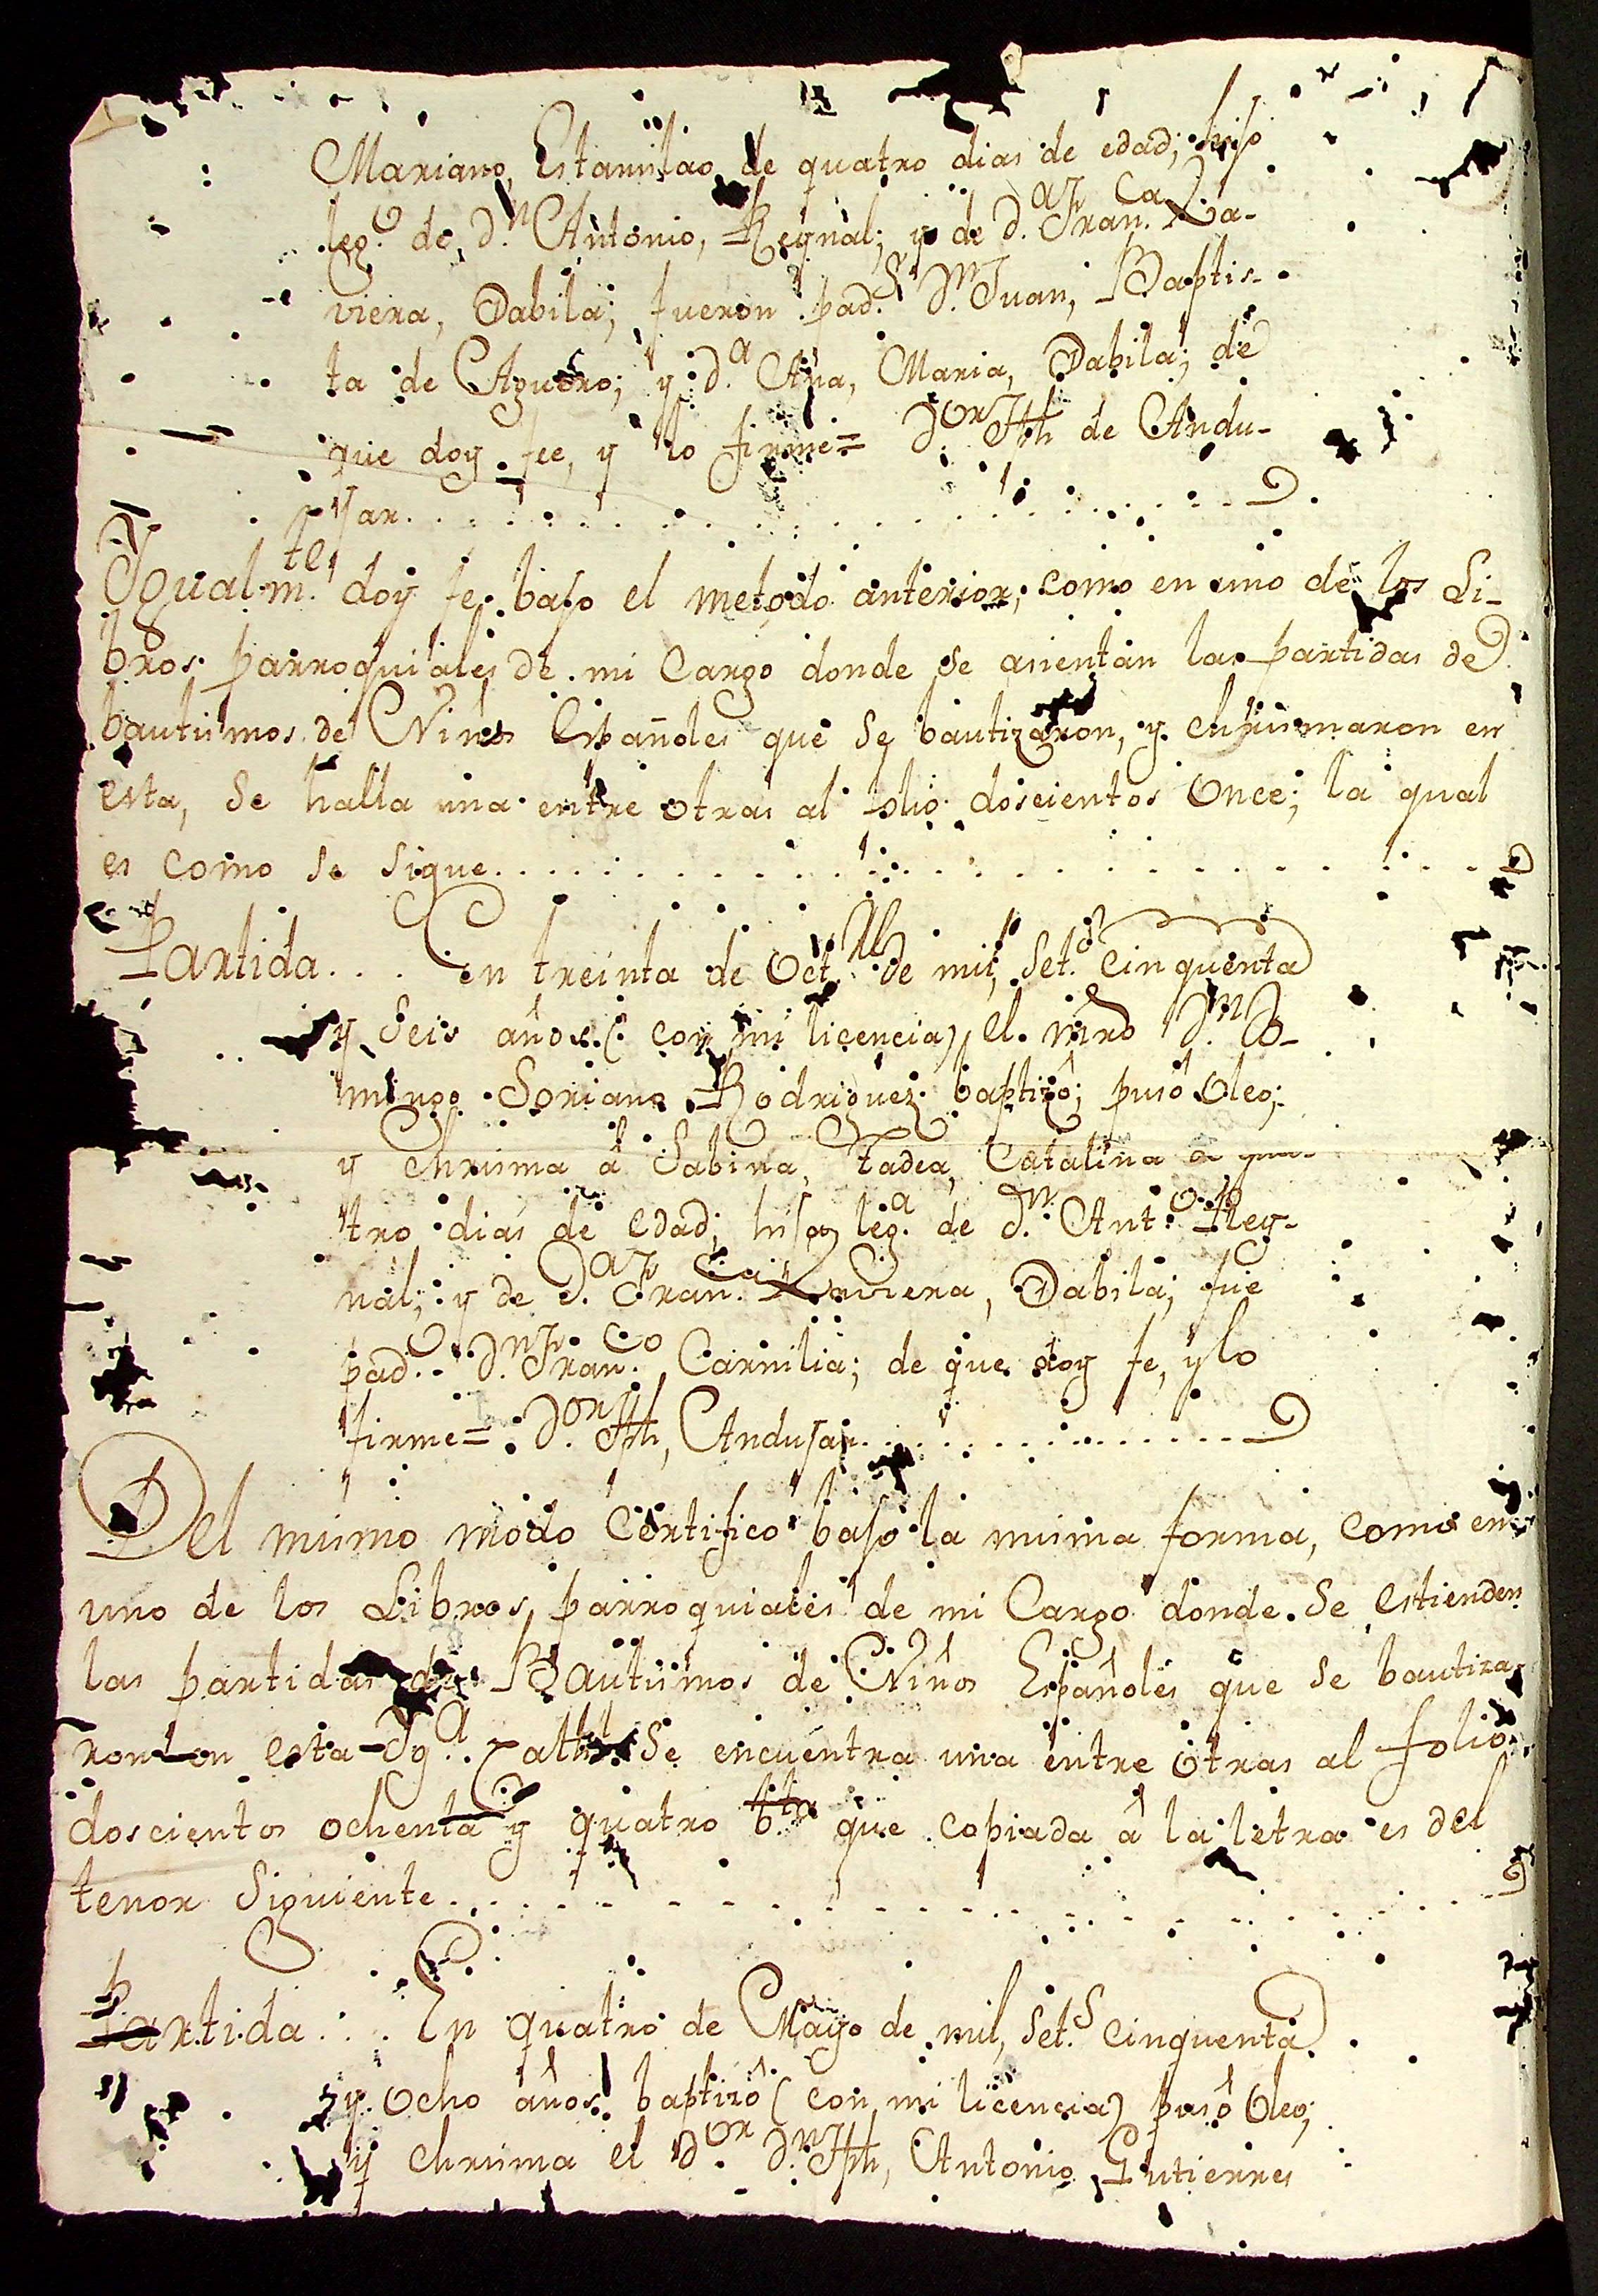 Mariano, Estanislao, de quatro dias de edad; hijo
leg.º de, D.ⁿ Antonio, Reynal; y de D.ª Fran.ᶜᵃ Xa-
viera, Dabila; fueron pad.ˢ D.ⁿ Juan, Baptis-
ta de Aguero; y D.ª Ana, Maria, Dabila; de
que doy fee, y lo firme= D.ᵒʳ Jph de Andu-
jar
Ygualm.ᵗᵉ doy fe bajo el metodo anterior, como en uno de los Li-
bros parroquiales de mi Cargo donde se asientan las partidas de
bautismos de Niños Españoles que se bautizaron, y chrismaron en
esta, se halla una entre otras al folio doscientos once; la qual
es como se sigue
Partida... En treinta de Oct.ᵇʳᵉ de mil, Set.ˢ cinquenta
y Seis años (con mi licencia) el mro D.ⁿ Do-
mingo Soriano Rodriguez baptizó; pusó oleo;
y Chrisma á Sabina, Tadea, Catalina de qua-
tro dias de edad; hija leg.ª de D.ⁿ Ant.º Rey-
nal; y de D.ª Fran.ᶜᵃ Xaviera, Dabila; fue
pad.º D.ⁿ Fran.ᶜᵒ Carnilia; de que doy fe, y lo
firme= D.ᵒʳ Jph, Andujar
Del mismo modo Certifico bajo la misma forma, como en
uno de los Libros parroquiales de mi Cargo donde se estienden
las partidas de Bautismos de Niños Españoles que se bautiza-
ron en esta Yg.ª Cath.ˡ se encuentra una entre otras al folio
doscientos ochenta y quatro b.ᵗᵃ que copiada á la letra es del
tenor Siguiente
Partida... En quatro de Mayo de mil, Set.ˢ cinquenta
y ocho años baptizó (con mi licencia) pusó Oleo;
y chrisma el D.ᵒʳ D.ⁿ Jph, Antonio Gutierres